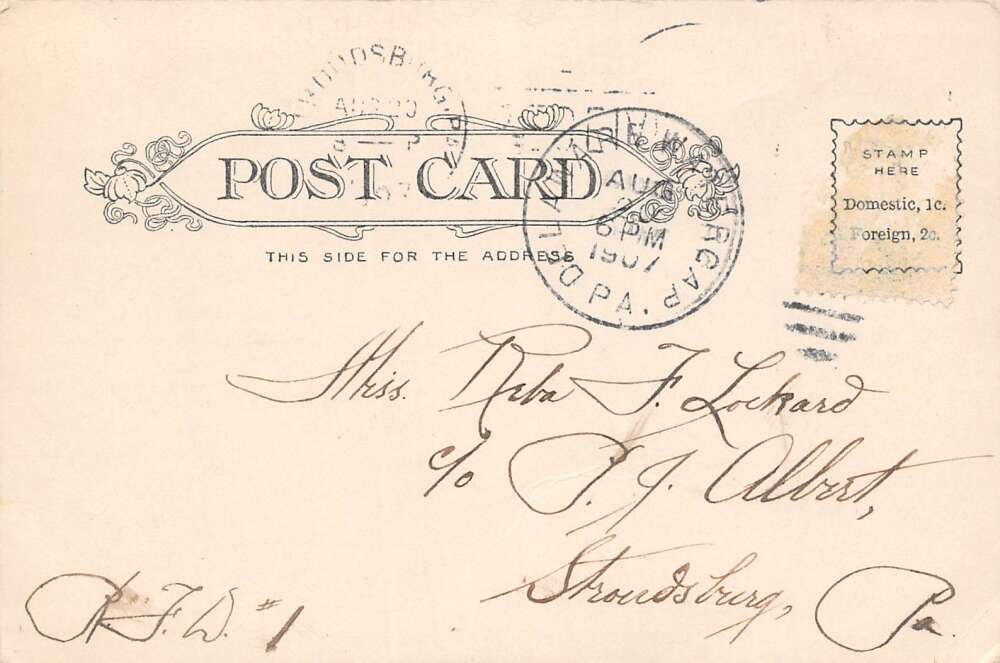 STROUDSBURG, PA.
AUG 20
POST CARD
THIS SIDE FOR THE ADDRESS
DELAWARE WATER GAP, PA.
AUG
20
6 PM
1907
STAMP
HERE
Domestic, 1c.
Foreign, 2c.
Miss. Reba F. Lockard
c/o P. J. Albert,
Stroudsburg, Pa.
R.F.D. #1